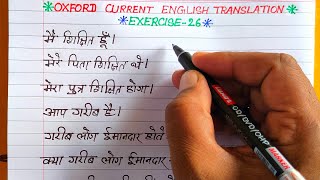 *OXFORD CURRENT ENGLISH TRANSLATION*
*EXERCISE-26*
मैं शिक्षित हूँ।
मेरे पिता शिक्षित थे।
मेरा पुत्र शिक्षित होगा।
आप गरीब हैं।
गरीब लोग ईमानदार होते
क्या गरीब लोग ईमानदार